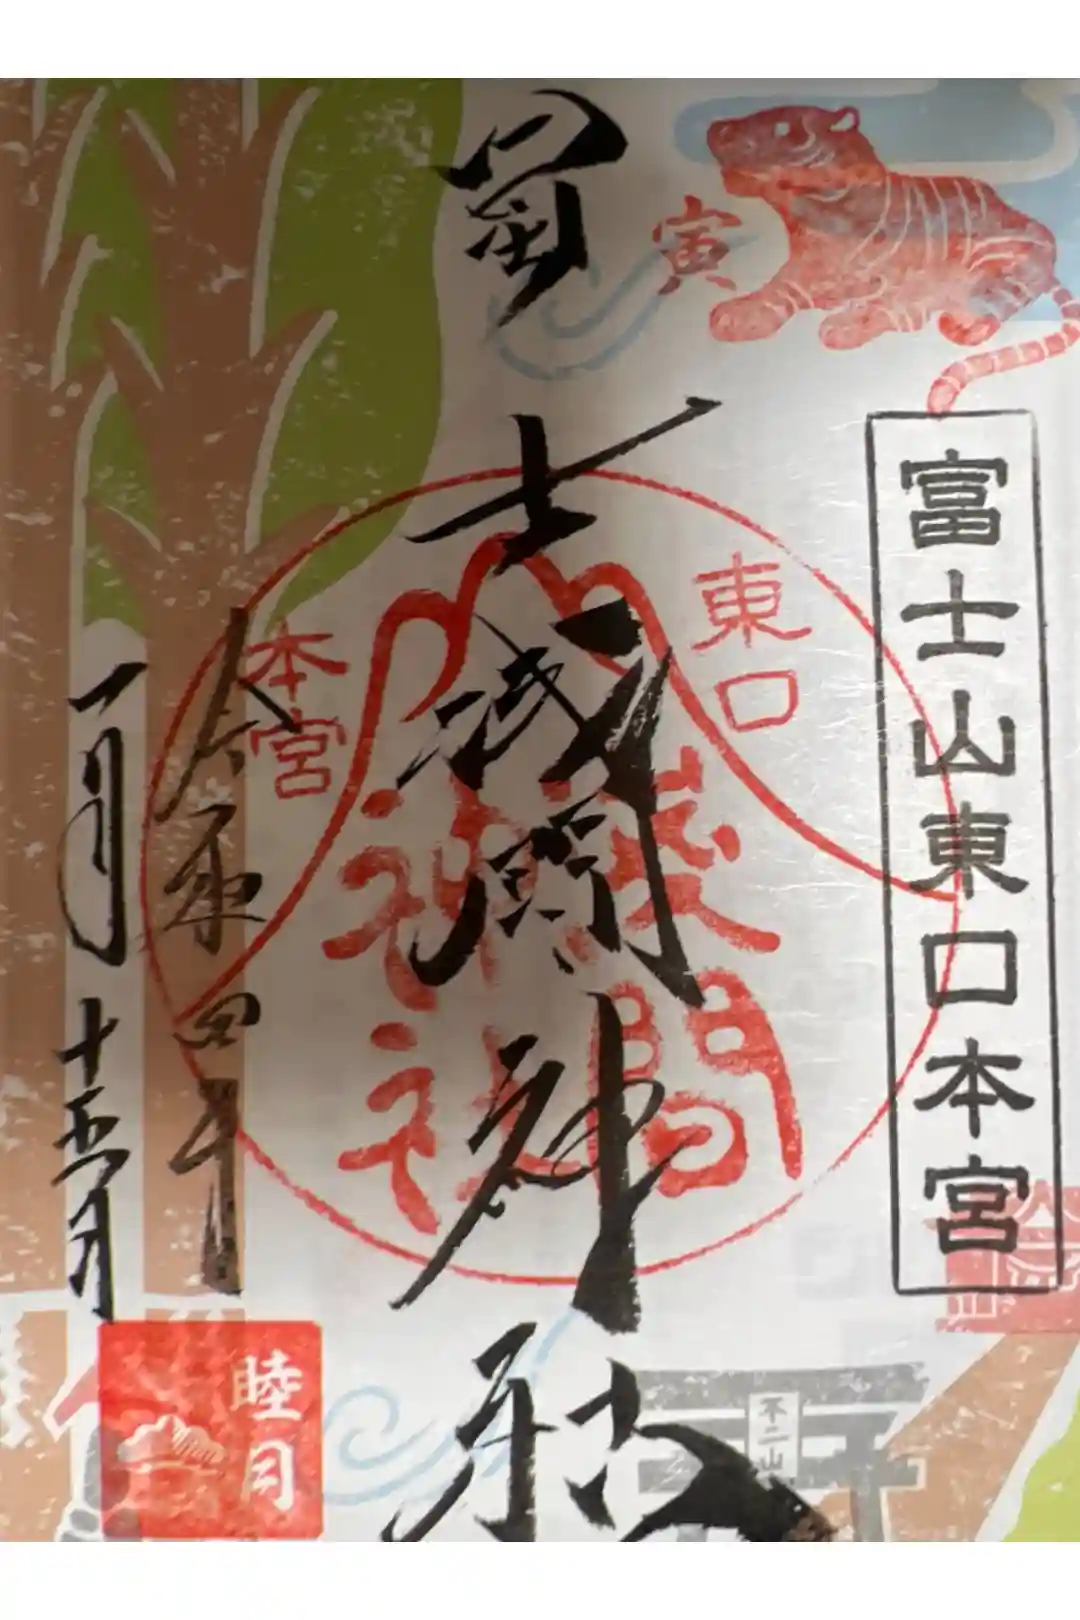 寅
富士山東口本宮
冨士浅間神社
東口
本宮
浅間
神社
令和四年
一月十五日
睦月
不二山